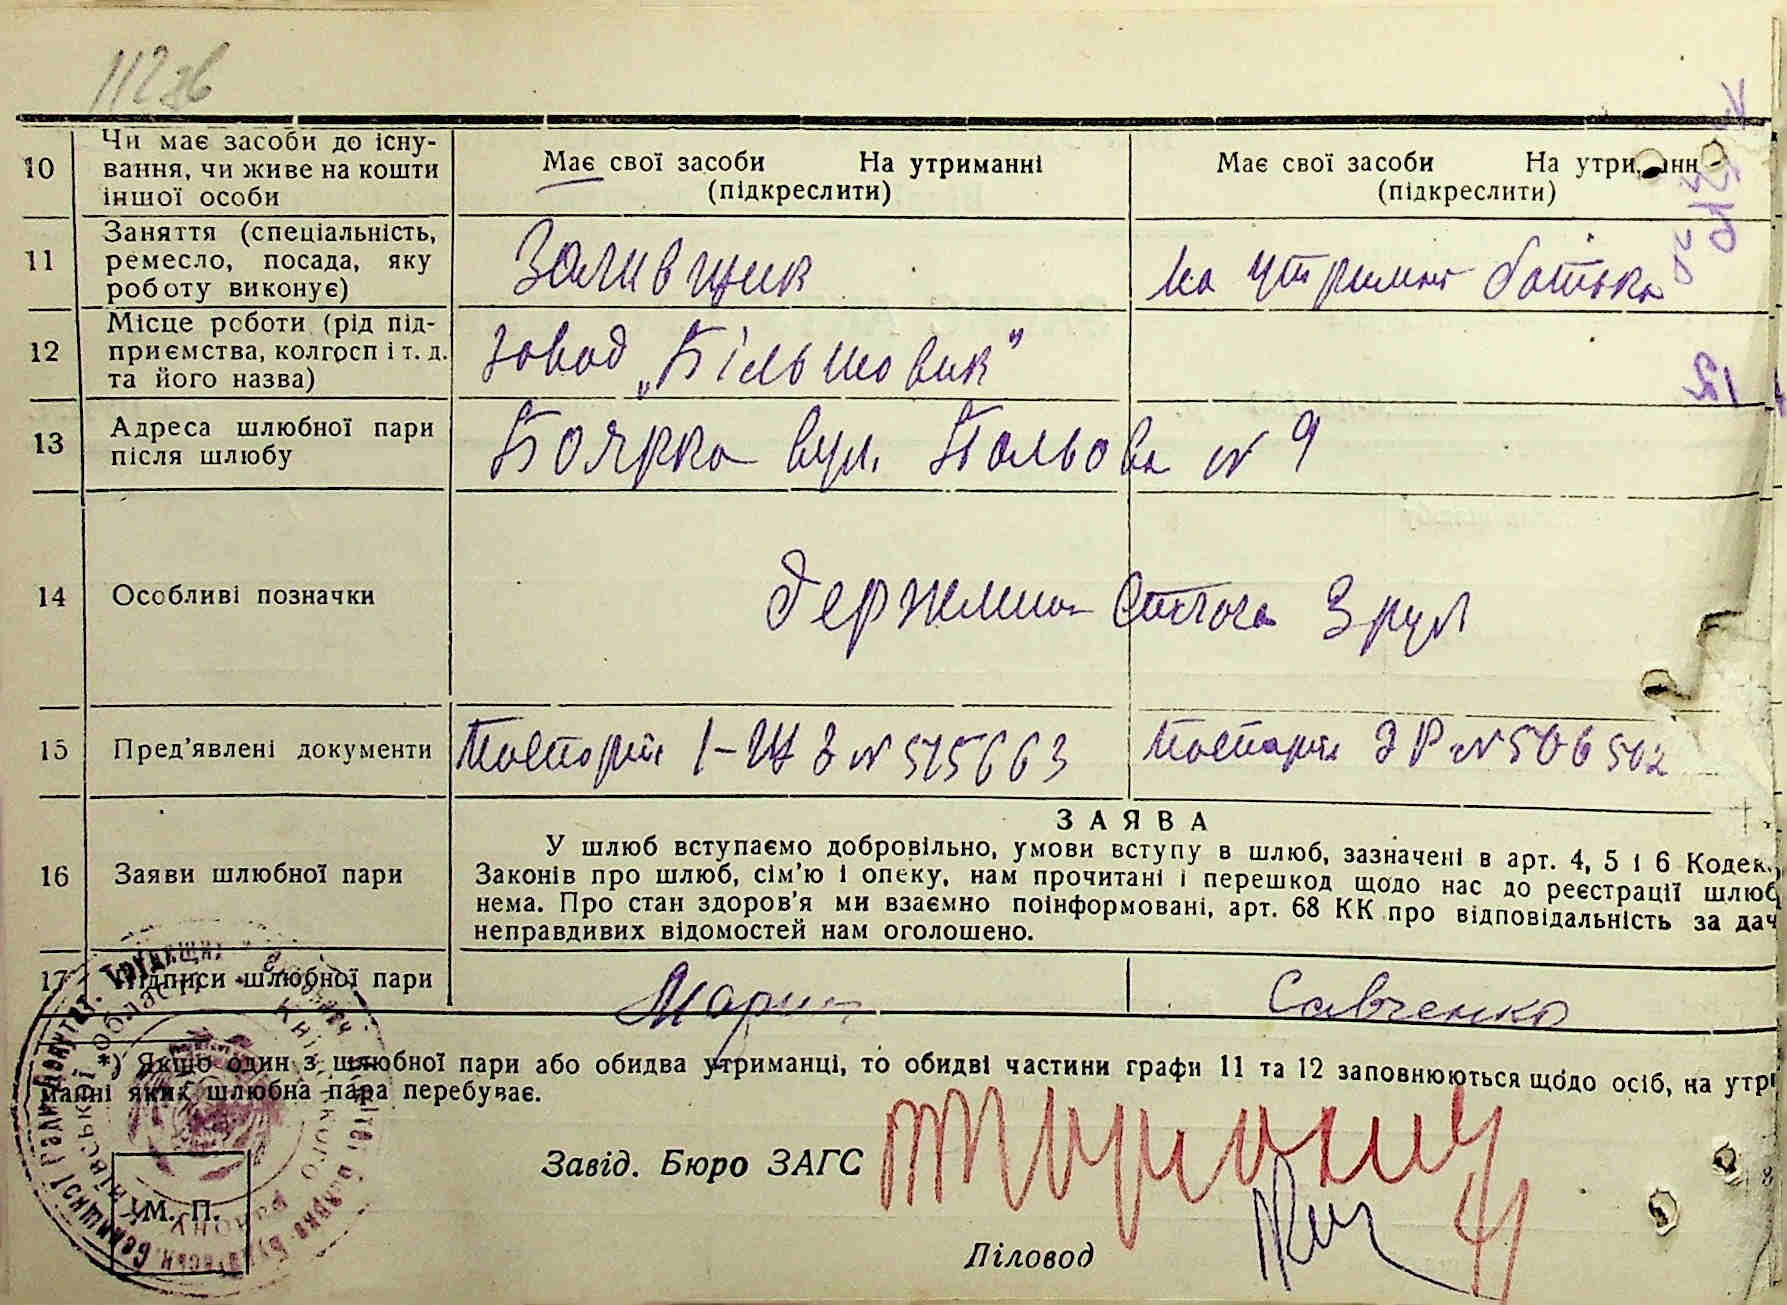 112зв
10 Чи має засоби до існу-
вання, чи живе на кошти
іншої особи
Має свої засоби На утриманні
(підкреслити)
Має свої засоби На утри
(підкреслити)
11 Заняття (спеціальність,
ремесло, посада, яку
роботу виконує)
Заливщик
на утриман батька
12 Місце роботи (рід під-
приємства, колгосп і т. д.
та його назва)
завод „Більшовик"
13 Адреса шлюбної пари
після шлюбу
Боярка вул. Польова № 9
14 Особливі позначки
Держмито Сплоча 3 рул
15 Пред'явлені документи
Паспорт № 515663
Паспорт ЭР № 506502
16 Заяви шлюбної пари
ЗАЯВА
У шлюб вступаємо добровільно, умови вступу в шлюб, зазначені в арт. 4, 5 і 6 Кодек
Законів про шлюб, сім'ю і опеку, нам прочитані і перешкод щодо нас до реєстрації шлюб
нема. Про стан здоров'я ми взаємно поінформовані, арт. 68 КК про відповідальність за дач
неправдивих відомостей нам оголошено.
17 Підписи шлюбної пари
Савченко
*) Якщо один з шлюбної пари або обидва утриманці, то обидві частини графи 11 та 12 заповнюються щодо осіб, на утри
манні яких шлюбна пара перебуває.
Завід. Бюро ЗАГС
М. П.
Діловод